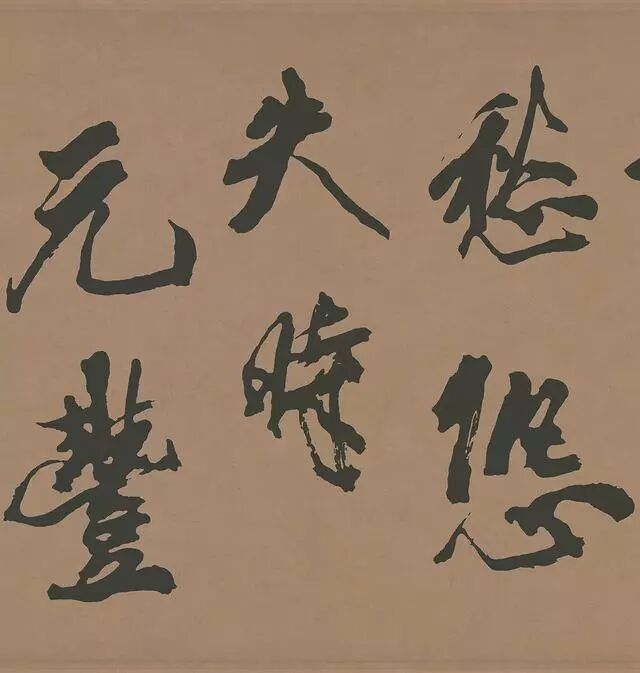 愁
失時
元豐